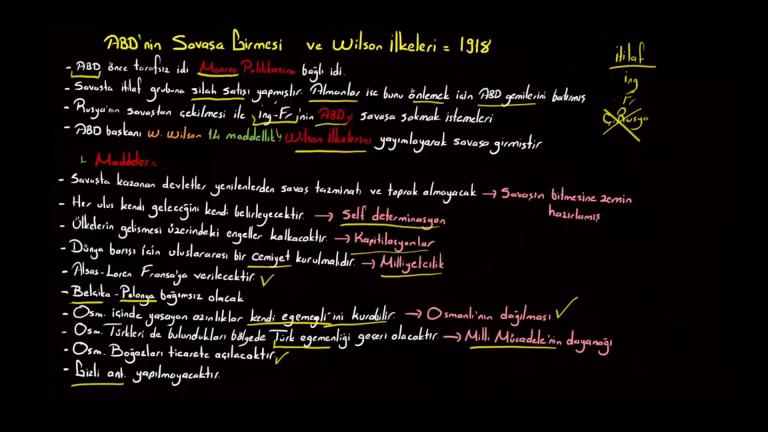 ABD'nin Savaşa Girmesi ve Wilson İlkeleri = 1918
- ABD önce tarafsız idi Monroe Politikasına bağlı idi.
- Savaşta itilaf grubuna silah satışı yapmıştır. Almanlar ise bunu önlemek için ABD gemilerini batırmış
- Rusya'nın savaştan çekilmesi ile ing-Fr'nin ABD'yi savaşa sokmak istemeleri
- ABD başkanı W. Wilson 14 maddelik Wilson İlkelerini yayımlayarak savaşa girmiştir.
itilaf
ing
Fr
Ç.Rusya
Maddeler =
- Savaşta kazanan devletler yenilenlerden savaş tazminatı ve toprak almayacak → Savaşın bitmesine zemin hazırlamış
- Her ulus kendi geleceğini kendi belirleyecektir. → Self determinasyon
- Ülkelerin gelişmesi üzerindeki engeller kalkacaktır. → Kapitilasyonlar
- Dünya barışı için uluslararası bir cemiyet kurulmalıdır. → Milliyetcilik
- Alsas-Loren Fransa'ya verilecektir. ✓
- Belcika - Polonya bağımsız olacak
- Osm. içinde yaşayan azınlıklar kendi egemegli-ini kurabilir. → Osmanlı'nın dağılması ✓
- Osm. Türkleri de bulundukları bölgede Türk egemenliği geçeri olacaktır. → Milli Mücadele'nin dayanağı
- Osm. Boğazları ticarete açılacaktır. ✓
- Gizli ant. yapılmayacaktır.